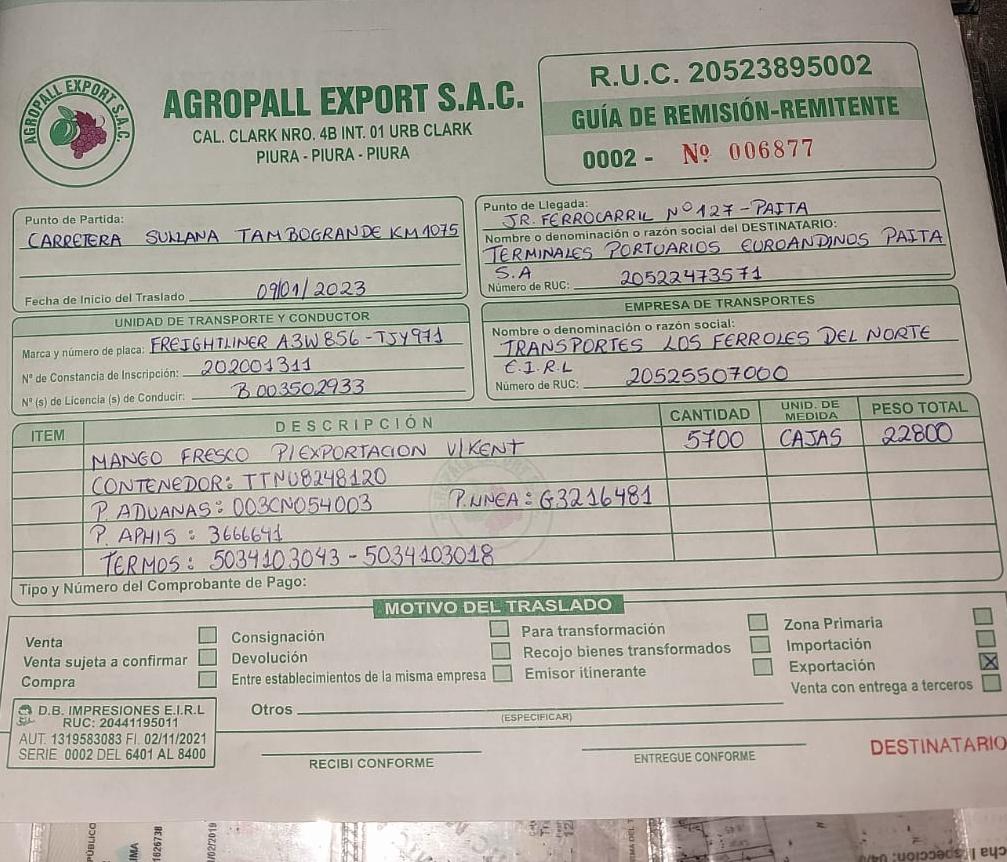 AGROPALL EXPORT S.A.C.
AGROPALL EXPORT S.A.C.
CAL. CLARK NRO. 4B INT. 01 URB CLARK
PIURA - PIURA - PIURA
R.U.C. 20523895002
GUÍA DE REMISIÓN-REMITENTE
0002 - Nº 006877
Punto de Partida:
CARRETERA SULLANA TAMBOGRANDE KM 1075
Fecha de Inicio del Traslado 09/01/2023
Punto de Llegada:
JR. FERROCARRIL Nº 127 - PAITA
Nombre o denominación o razón social del DESTINATARIO:
TERMINALES PORTUARIOS EUROANDINOS PAITA
S.A
Número de RUC: 20522473571
UNIDAD DE TRANSPORTE Y CONDUCTOR
Marca y número de placa: FREIGHTLINER A3W856 - TJY971
Nº de Constancia de Inscripción: 202001311
Nº (s) de Licencia (s) de Conducir: B003502933
EMPRESA DE TRANSPORTES
Nombre o denominación o razón social:
TRANSPORTES LOS FERROLES DEL NORTE
E.I.R.L
Número de RUC: 20525507000
ITEM DESCRIPCIÓN CANTIDAD UNID. DE MEDIDA PESO TOTAL
MANGO FRESCO P/EXPORTACION V/KENT 5700 CAJAS 22800
CONTENEDOR: TTNU8248120
P. ADUANAS: 003CN054003 P. LINEA: G3216481
P. APHIS : 3666641
TERMOS : 5034103043 - 5034103018
Tipo y Número del Comprobante de Pago:
MOTIVO DEL TRASLADO
Venta
Venta sujeta a confirmar
Compra
Consignación
Devolución
Entre establecimientos de la misma empresa
Para transformación
Recojo bienes transformados
Emisor itinerante
Zona Primaria
Importación
Exportación X
Venta con entrega a terceros
Otros
(ESPECIFICAR)
D.B. IMPRESIONES E.I.R.L
RUC: 20441195011
AUT. 1319583083 FI. 02/11/2021
SERIE 0002 DEL 6401 AL 8400
RECIBI CONFORME
ENTREGUE CONFORME
DESTINATARIO
PÚBLICO
1626738
/02/2019